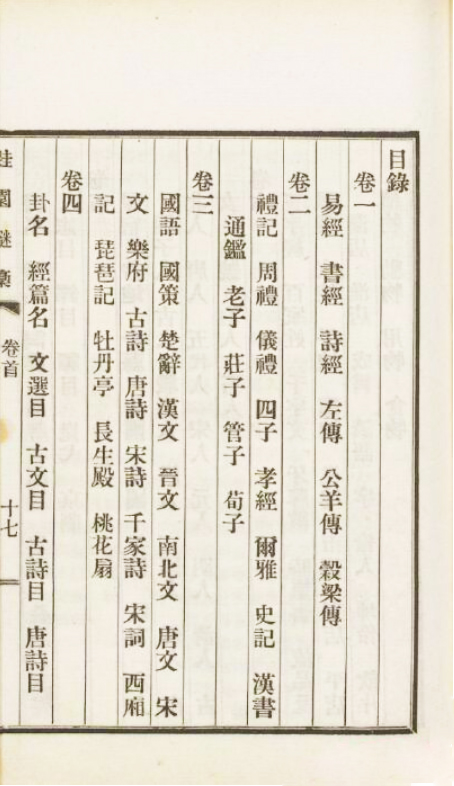 目錄
卷一
易經 書經 詩經 左傳 公羊傳 穀梁傳
卷二
禮記 周禮 儀禮 四子 孝經 爾雅 史記 漢書
通鑑 老子 莊子 管子 荀子
卷三
國語 國策 楚辭 漢文 晉文 南北文 唐文 宋
文 樂府 古詩 唐詩 宋詩 千家詩 宋詞 西廂
記 琵琶記 牡丹亭 長生殿 桃花扇
卷四
卦名 經篇名 文選目 古文目 古詩目 唐詩目
園謎 卷首 十七